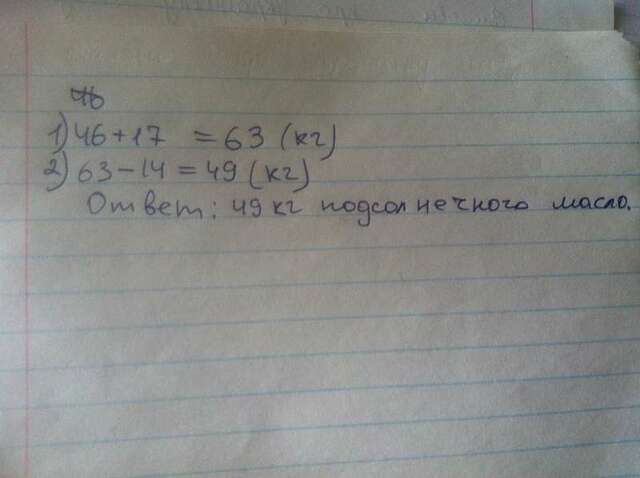 46
1) 46+17 = 63 (кг)
2) 63-14 = 49 (кг)
Ответ: 49 кг подсолнечного масло.